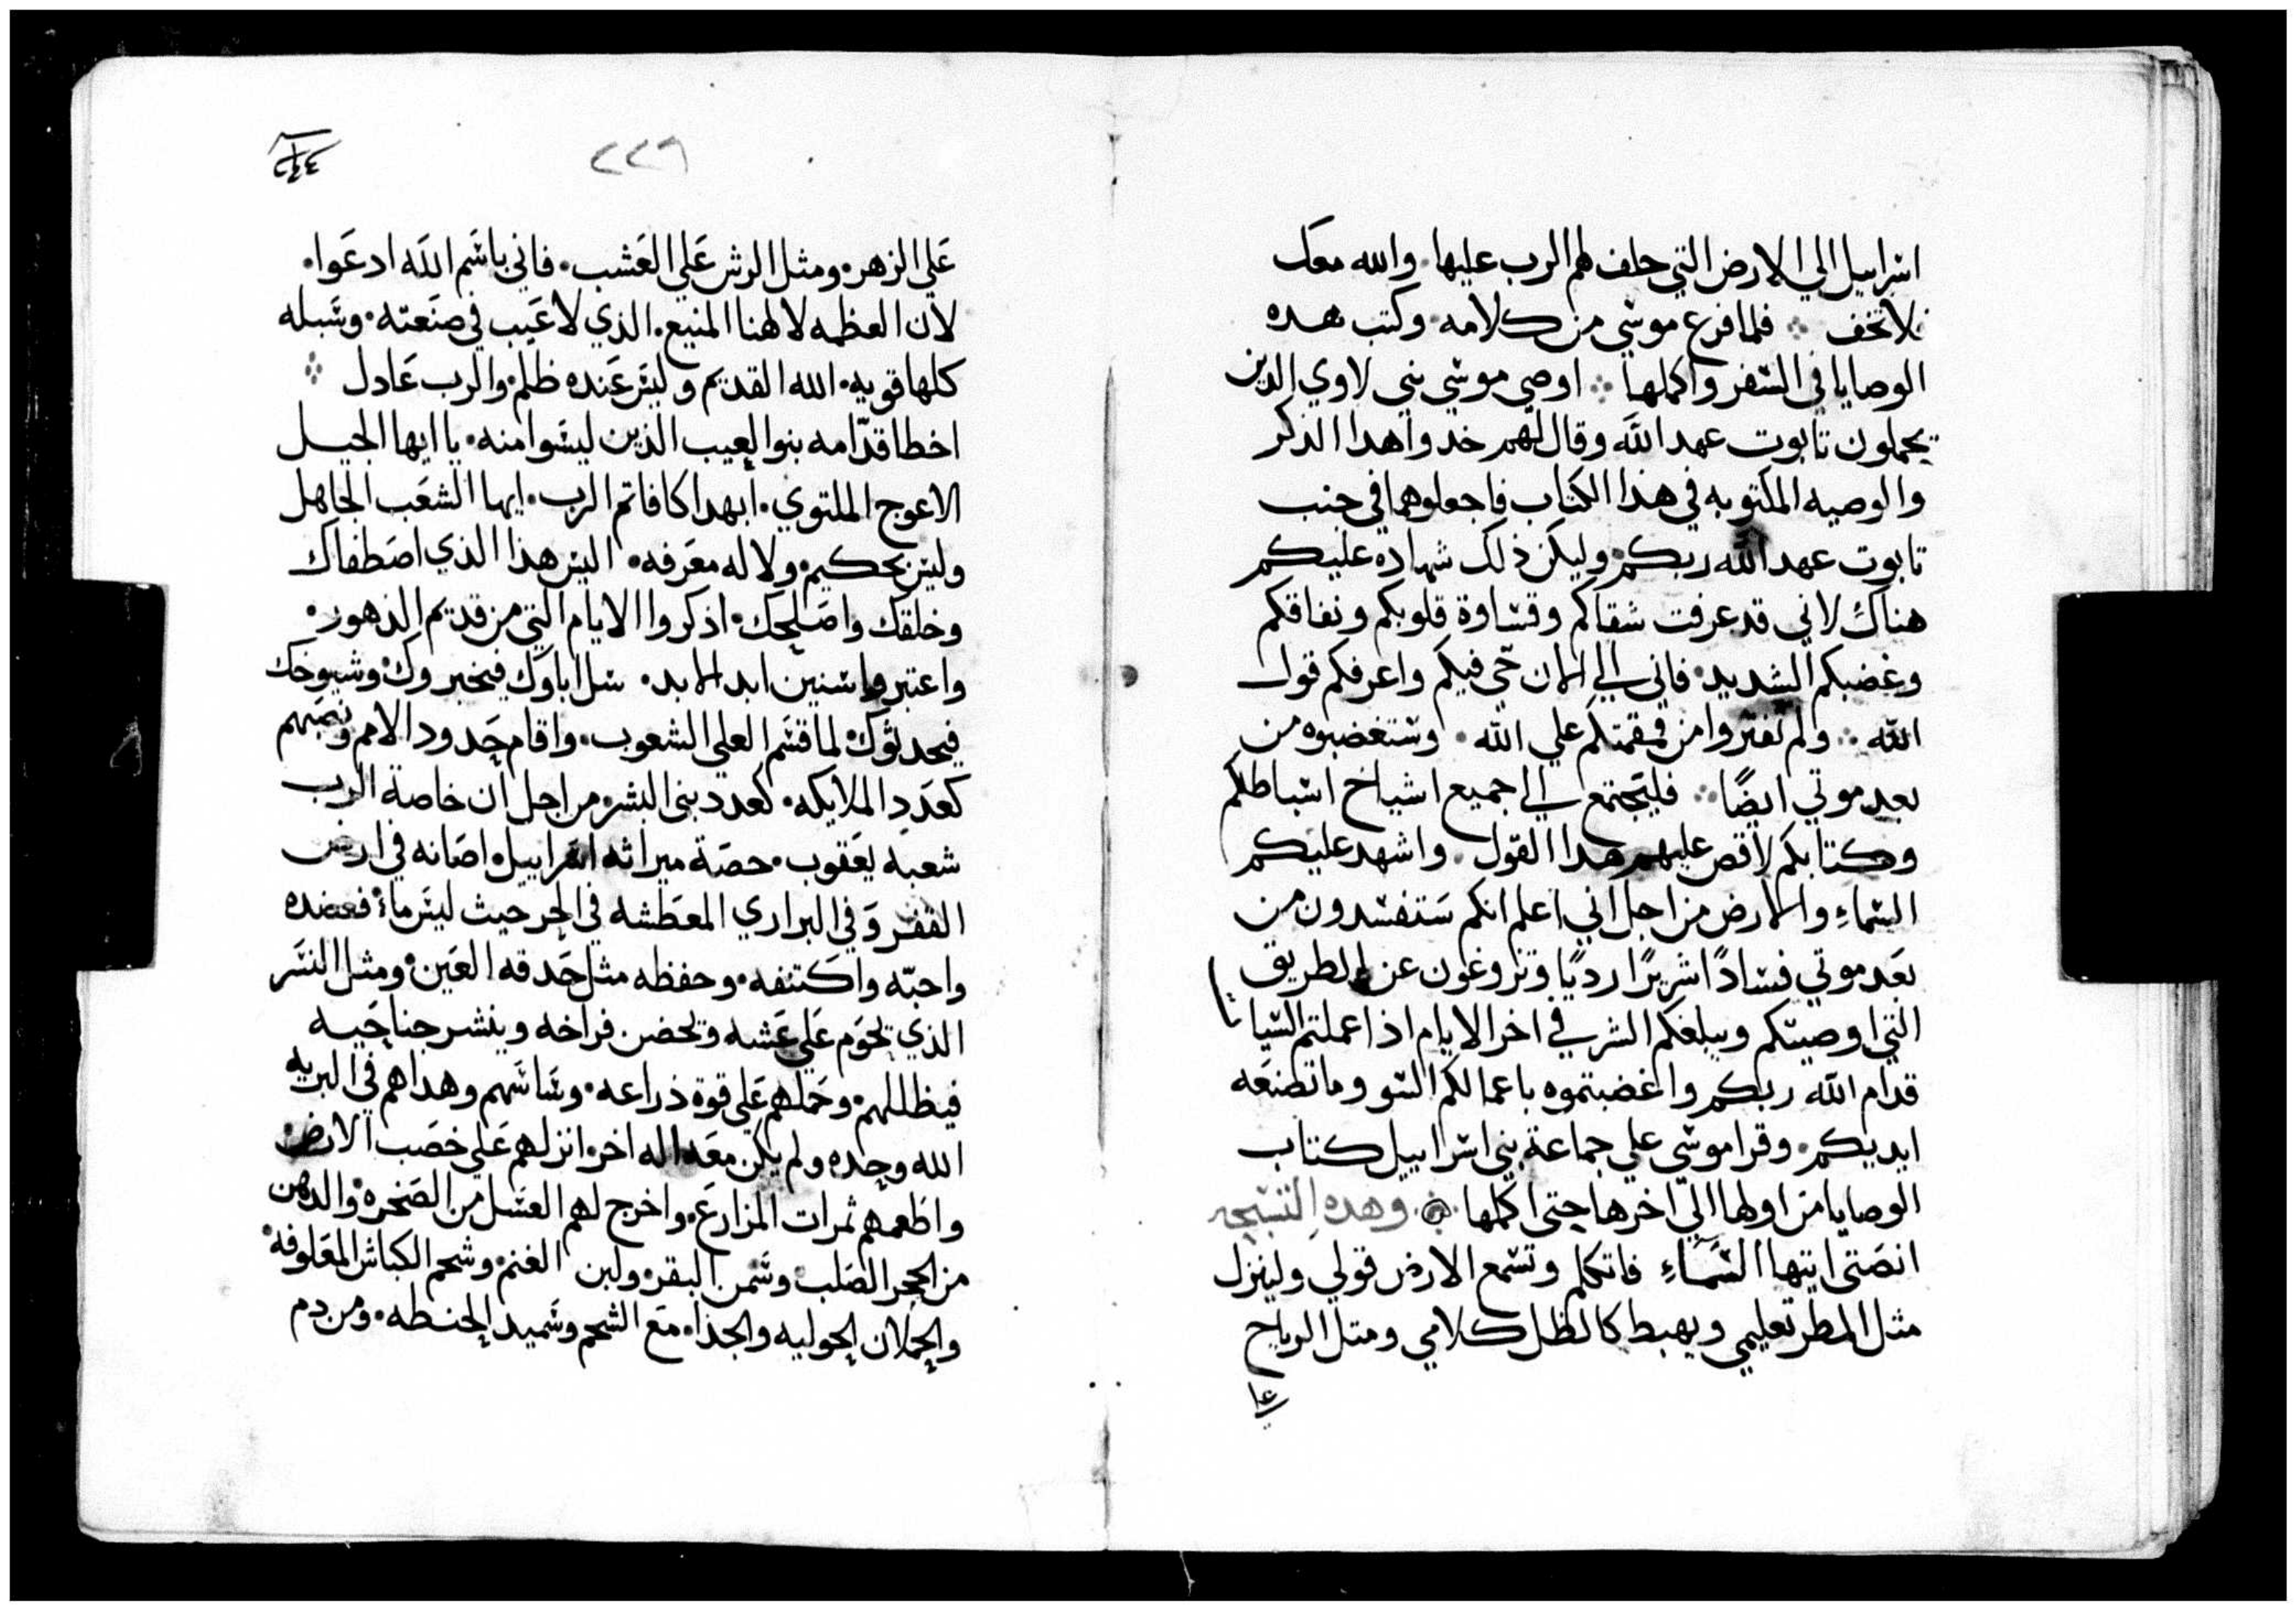 اسراييل الي الارض التي حلف لهم الرب عليها. والله معك
فلا تخف ܀ فلما فرغ موسي من كلامه. وكتب هده
الوصايا في السفر واكملها ܀ اوصي موسي بني لاوي الدين
يحملون تابوت عهد الله وقال لهم خدوا هدا الذكر
والوصيه المكتوبه في هذا الكتاب فاجعلوهما في جنب
تابوت عهد الله ربكم. وليكن ذلك شهاده عليكم
هناك لاني قد عرفت شقاكم وقساوة قلوبكم ونفاقكم
وغضبكم الشديد. فاني الي الان حي فيكم واعرفكم قول
الله ܀ ولم تفتروا من قمقمتكم علي الله. وستغضبوه من
بعد موتي ايضًا ܀ فليجتمع الي جميع اشياخ اسباطكم
وكتابكم لاقص عليهم هدا القول. واشهد عليكم
السماءِ والارض من اجل اني اعلم انكم ستفسدون من
بعد موتي فسادًا شريرًا رديًا وتزوغون عن الطريق
التي اوصيتكم ويبلغكم الشر في اخر الايام اذا عملتم السيا
ت
قدام الله ربكم واغضبتموه باعمالكم السو وما تصنعه
ايديكم. وقرا موسي علي جماعة بني اسراييل كتاب
الوصايا من اولها الي اخرها حتي اكملها. وهده التسبحه
انصتي ايتها السماءِ فاتكلم وتسمع الارض قولي ولينزل
مثل المطر تعليمي ويهبط كالظل كلامي ومتل الرياح
علي
٢٢٩
علي الزهر. ومثل الرش علي العشب. فاني باسم الله ادعوا.
لان العظمه لالهنا المنيع. الذي لا عيب في صنعته. وسبله
كلها قويه. الله القديم وليس عنده ظلم. والرب عادل ܀
اخطا قدّامه بنوا لعيب الذين ليسوا منه. يا ايها الجيل
الاعوج الملتوي. ابهدا كافاتم الرب. ايها الشعب الجاهل
وليس بحكيم. ولا له معرفه. اليس هذا الذي اصطفاك
وخلقك واصلحك. اذكروا الايام التي من قديم الذهور.
واعتبروا سنين ابد الابد. سل اباوك فيخبروك. وشيوخك
فيحدثوك. لما قسم العلي الشعوب. واقام حدود الامم ونصبهم
كعدد الملايكه. كعدد بني البشر. من اجل ان خاصة الرب
شعبه يعقوب. حصة ميراثه اسراييل. اصانه في ارض
القفر وفي البراري المعطشه في الحر حيث ليس ماءً. فعضده
واحبّه واكتنفه. وحفظه مثل حدقه العين. ومثل النسر
الذي يحوم علي عشه ويحضن فراخه وينشر جناحيه
فيظللهم. وحملهم علي قوة ذراعه. وساسهم وهداهم في البريه
الله وحده ولم يكن معه اله اخر. انزلهم علي خصب الارض.
واطعمهم ثمرات المزارع. واخرج لهم العسل من الصخره. والدهن
من الحجر الصلب. وسمن البقر. ولبن الغنم. وشحم الكباش المعلوفة.
والحملان الحوليه والجذا. مع الشحم وسميد الحنطه. ومن دم